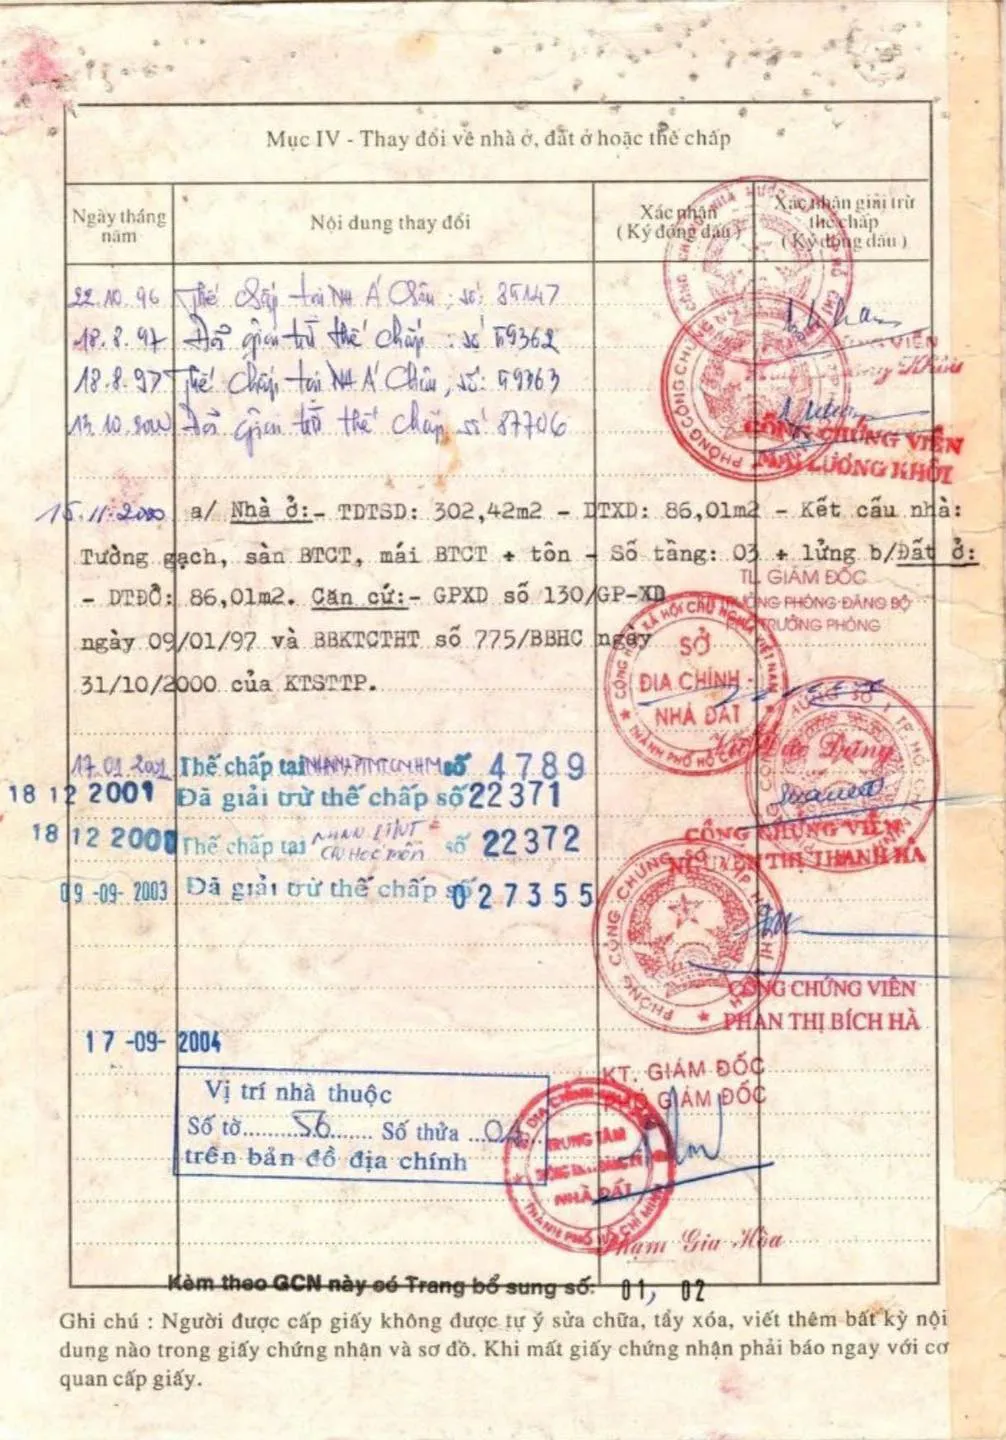 Mục IV - Thay đổi về nhà ở, đất ở hoặc thế chấp
Ngày tháng năm
Nội dung thay đổi
Xác nhận (Ký đóng dấu)
Xác nhận giải trừ thế chấp (Ký đóng dấu)
22.10.96 Thế chấp tại NH Á Châu, số: 35147
18.8.97 Đã giải trừ thế chấp số 59362
18.8.97 Thế chấp tại NH Á Châu, số: 59363
13.10.2000 Đã giải trừ thế chấp số 87706
CÔNG CHỨNG VIÊN
MAI LƯƠNG KHÔI
15.11.2000 a/ Nhà ở:- TDTSD: 302,42m2 - DTXD: 86,01m2 - Kết cấu nhà:
Tường gạch, sàn BTCT, mái BTCT + tôn - Số tầng: 03 + lửng b/Đất ở:
- DTĐỒ: 86,01m2. Căn cứ:- GPXD số 130/GP-XD
ngày 09/01/97 và BBKTCTHT số 775/BBHC ngày
31/10/2000 của KTSTTP.
TL GIÁM ĐỐC
TRƯỞNG PHÒNG ĐĂNG BỘ
TRƯỞNG PHÒNG
SỞ
ĐỊA CHÍNH -
NHÀ ĐẤT
17.01.2001 Thế chấp tại số 4789
18 12 2001 Đã giải trừ thế chấp số 22371
18 12 2001 Thế chấp tại số 22372
CN Hóc Môn
09 -09- 2003 Đã giải trừ thế chấp số 027355
CÔNG CHỨNG VIÊN
NGUYỄN THỊ THANH HÀ
CÔNG CHỨNG VIÊN
PHAN THỊ BÍCH HÀ
17 -09- 2004
Vị trí nhà thuộc
Số tờ 56 Số thửa
trên bản đồ địa chính
KT. GIÁM ĐỐC
PHÓ GIÁM ĐỐC
TRUNG TÂM
NHÀ ĐẤT
Phạm Gia Hòa
Kèm theo GCN này có Trang bổ sung số: 01, 02
Ghi chú : Người được cấp giấy không được tự ý sửa chữa, tẩy xóa, viết thêm bất kỳ nội
dung nào trong giấy chứng nhận và sơ đồ. Khi mất giấy chứng nhận phải báo ngay với cơ
quan cấp giấy.